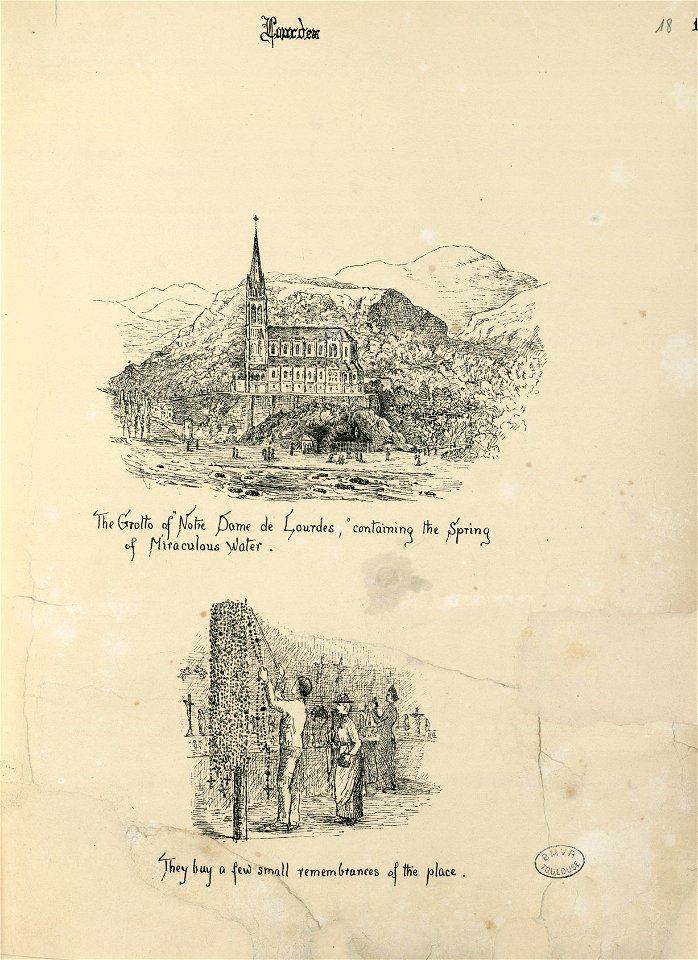 Lourdes
18
The Grotto of "Notre Dame de Lourdes," containing the Spring
of Miraculous Water.
They buy a few small remembrances of the place.
B.M.V.R
TOULOUSE